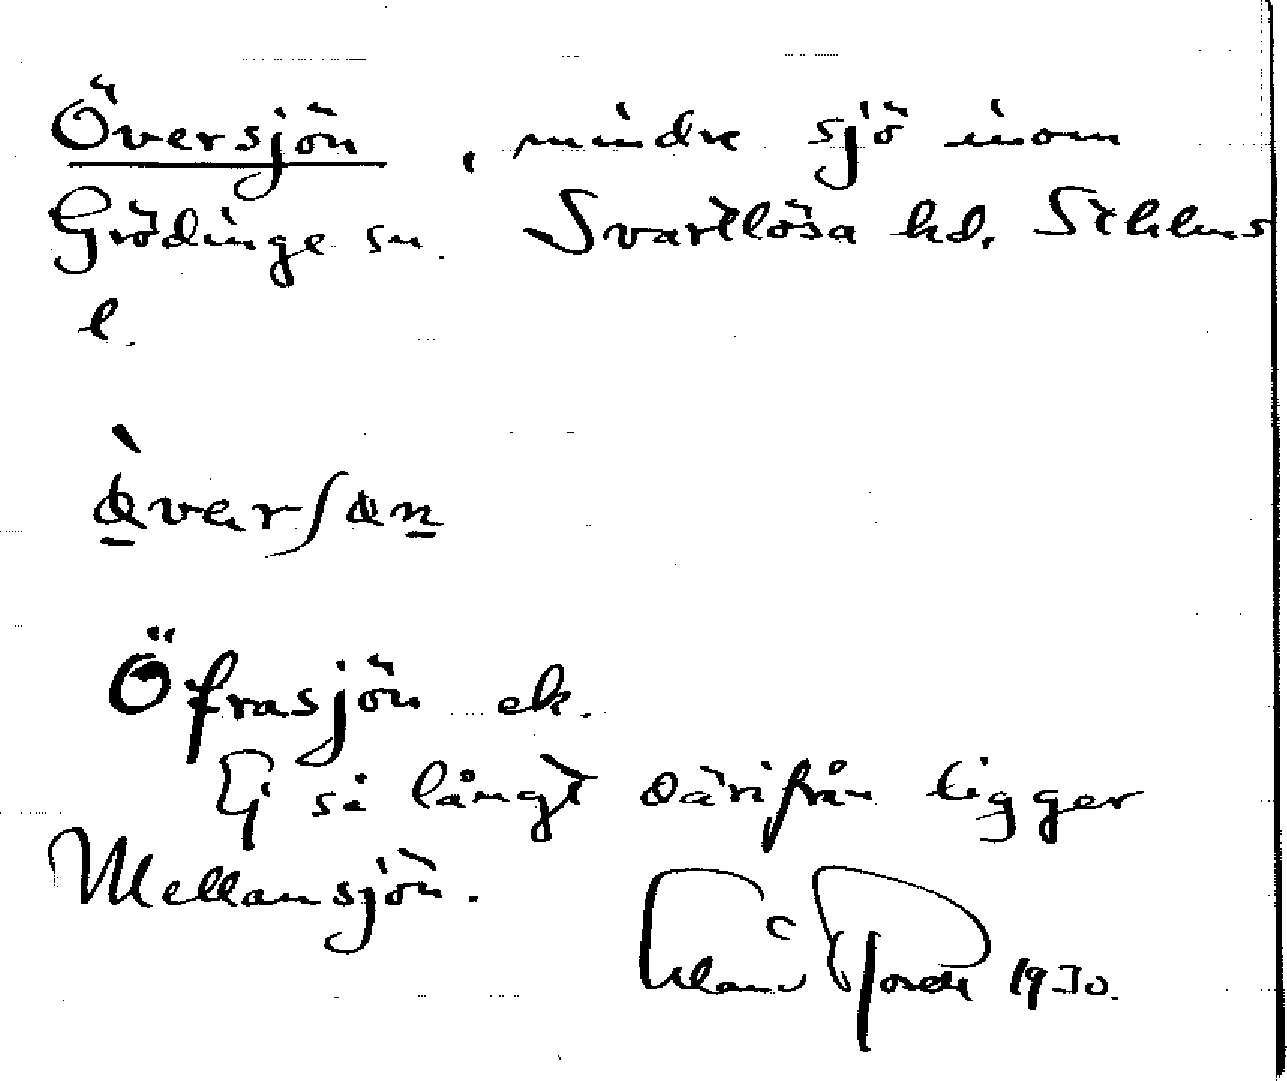 Översjön, mindre sjö inom
Grödinge sn. Svartlösa hd. Sthlms
l.
Öfrasjön ek.
Ej så långt därifrån ligger
Mellansjön.
1930.